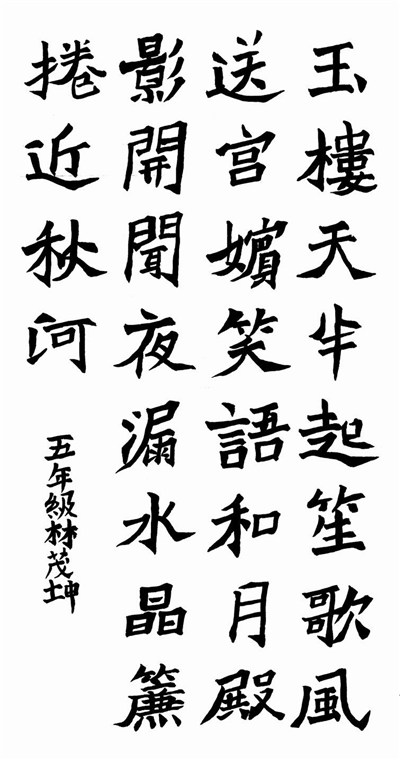 玉樓天半起笙歌風
送宮嬪笑語和月殿
影開聞夜漏水晶簾
捲近秋河
五年級林茂坤